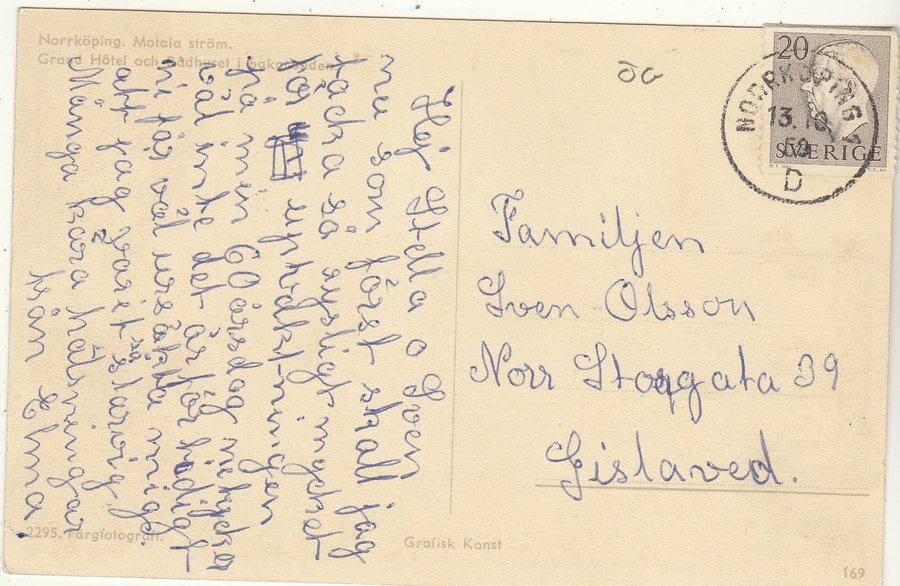 Norrköping. Motala ström.
Grand Hôtel och Rådhuset i bakgrunden.
20
SVERIGE
NORRKÖPING 1
13.10.
59
D
Hej Stella o Sven
nu som först skall jag
tacka så rysligt mycket
för uppvaktningen
på min 60 årsdag ni tycker
väl inte det är för
ni får väl ursäkta mig
att jag varit så
Många kära hälsningar
från Elma
Familjen
Sven Olsson
Norr Storgata 39
Gislaved.
2295. Färgfotografi.
Grafisk Konst
169